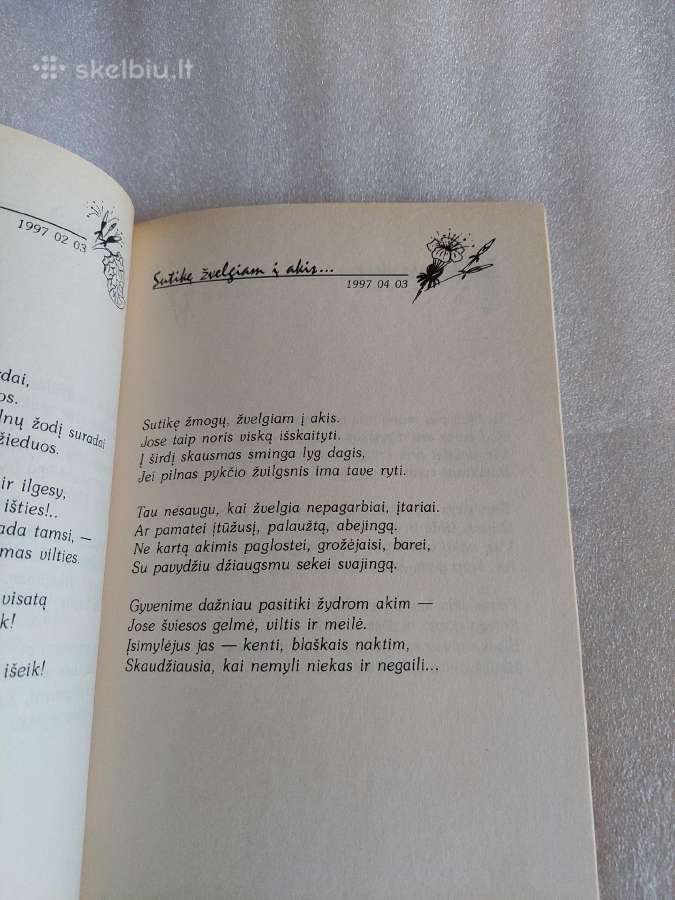 skelbiu.lt
1997 02 03
žodį suradai
žieduos.
ir ilgesy,
išties!..
tamsi, —
vilties.
visatą
išeik!
Sutikę žvelgiam į akis...
1997 04 03
Sutikę žmogų, žvelgiam į akis.
Jose taip noris viską išskaityti.
Į širdį skausmas sminga lyg dagis,
Jei pilnas pykčio žvilgsnis ima tave ryti.
Tau nesaugu, kai žvelgia nepagarbiai, įtariai.
Ar pamatei įtūžusį, palaužtą, abejingą.
Ne kartą akimis paglostei, grožėjaisi, barei,
Su pavydžiu džiaugsmu sekei svajingą.
Gyvenime dažniau pasitiki žydrom akim —
Jose šviesos gelmė, viltis ir meilė.
Įsimylėjus jas — kenti, blaškais naktim,
Skaudžiausia, kai nemyli niekas ir negaili...